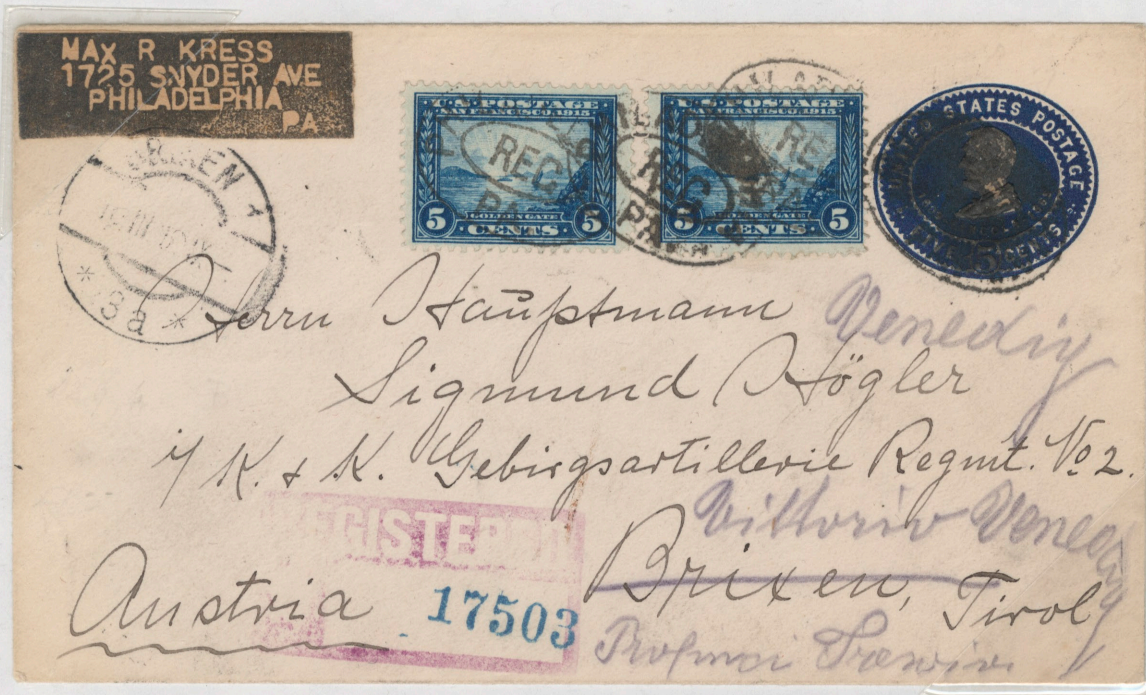 MAX R KRESS
1725 SNYDER AVE
PHILADELPHIA
PA
U.S. POSTAGE
SAN FRANCISCO 1915
GOLDEN GATE
5 CENTS 5
U.S. POSTAGE
SAN FRANCISCO 1915
GOLDEN GATE
5 CENTS 5
REG
PA.
REG
PA.
UNITED STATES POSTAGE
FIVE 5 CENTS
1
* 8a *
Herrn Hauptmann
Venedig
Sigmund Högler
i/ K. & K. Gebirgsartillerie Regmt. No 2.
Vittorio Venedig
REGISTERED
Brixen, Tirol
Austria
17503